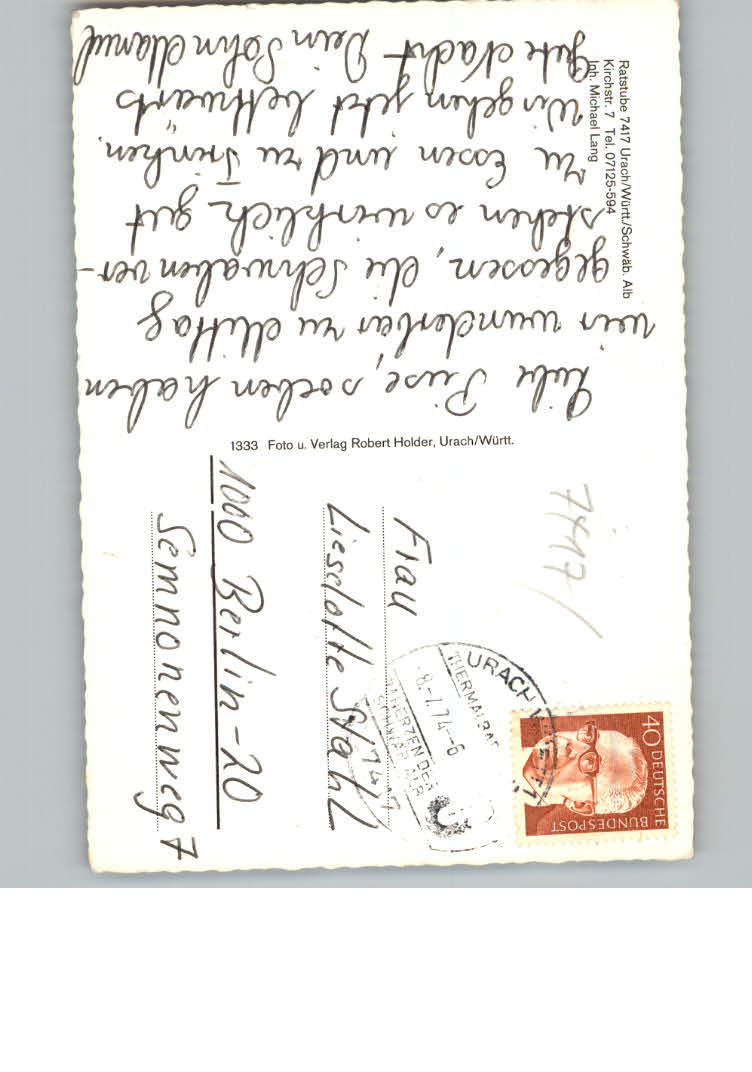 Ratstube 7417 Urach/Württ./Schwäb. Alb
Kirchstr. 7 Tel. 07125-594
Inh. Michael Lang
soeben haben
wir wunderbar zu Mittag
gegessen, die Schwaben ver-
stehen es wirklich gut
zu Essen und zu Trinken.
Wir gehen jetzt bettwärts
Gute Nacht Dein Sohn Manuel
1333 Foto u. Verlag Robert Holder, Urach/Württ.
7417/
URACH
THERMALBAD
8.-7.74-6
IM HERZEN DER
SCHWÄB. ALB
40 DEUTSCHE
BUNDESPOST
Frau
Lieselotte Stahl
1000 Berlin-20
Semnonenweg 7